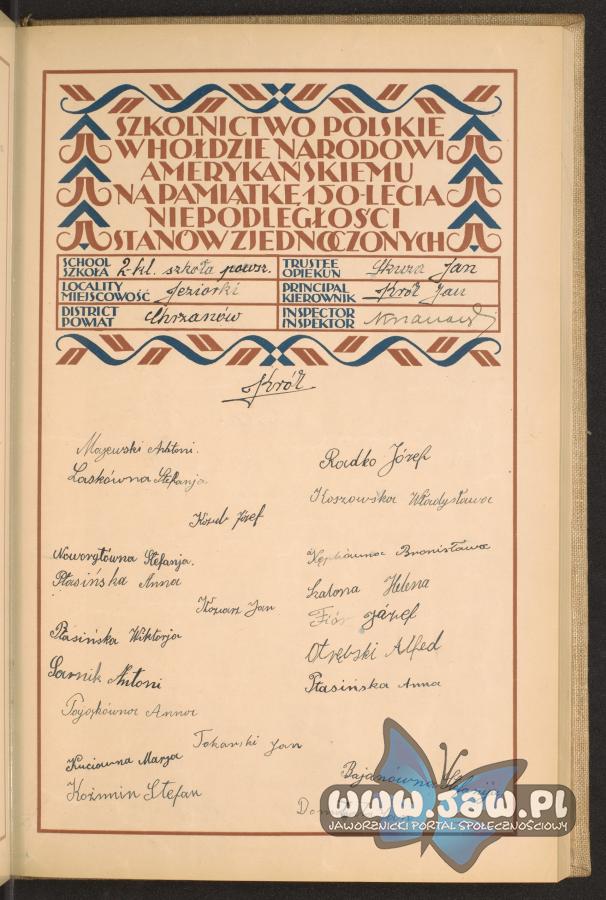 SZKOLNICTWO POLSKIE
W HOŁDZIE NARODOWI
AMERYKAŃSKIEMU
NA PAMIĄTKĘ 150-LECIA
NIEPODLEGŁOŚCI
STANÓW ZJEDNOCZONYCH
SCHOOL
SZKOŁA 2-kl. szkoła powsz.
TRUSTEE
OPIEKUN Skuza Jan
LOCALITY
MIEJSCOWOŚĆ Jeziorki
PRINCIPAL
KIEROWNIK Król Jan
DISTRICT
POWIAT Chrzanów
INSPECTOR
INSPEKTOR
Król
Majewski Antoni.
Radko Józef
Laskówna Stefanja
Koszowska Władysława
Józef
Noworytówna Stefanja.
Bronisława
Ptasińska Anna
Szatona Helena
Koziarz Jan
Fiór Józef
Ptasińska Wiktorja
Otrębski Alfed
Sarnik Antoni
Ptasińska Anna
Anna
Tokarski Jan
Kuciówna Marja
Bajanówna
Koźmin Stefan
www.jaw.pl
JAWORZNICKI PORTAL SPOŁECZNOŚCIOWY